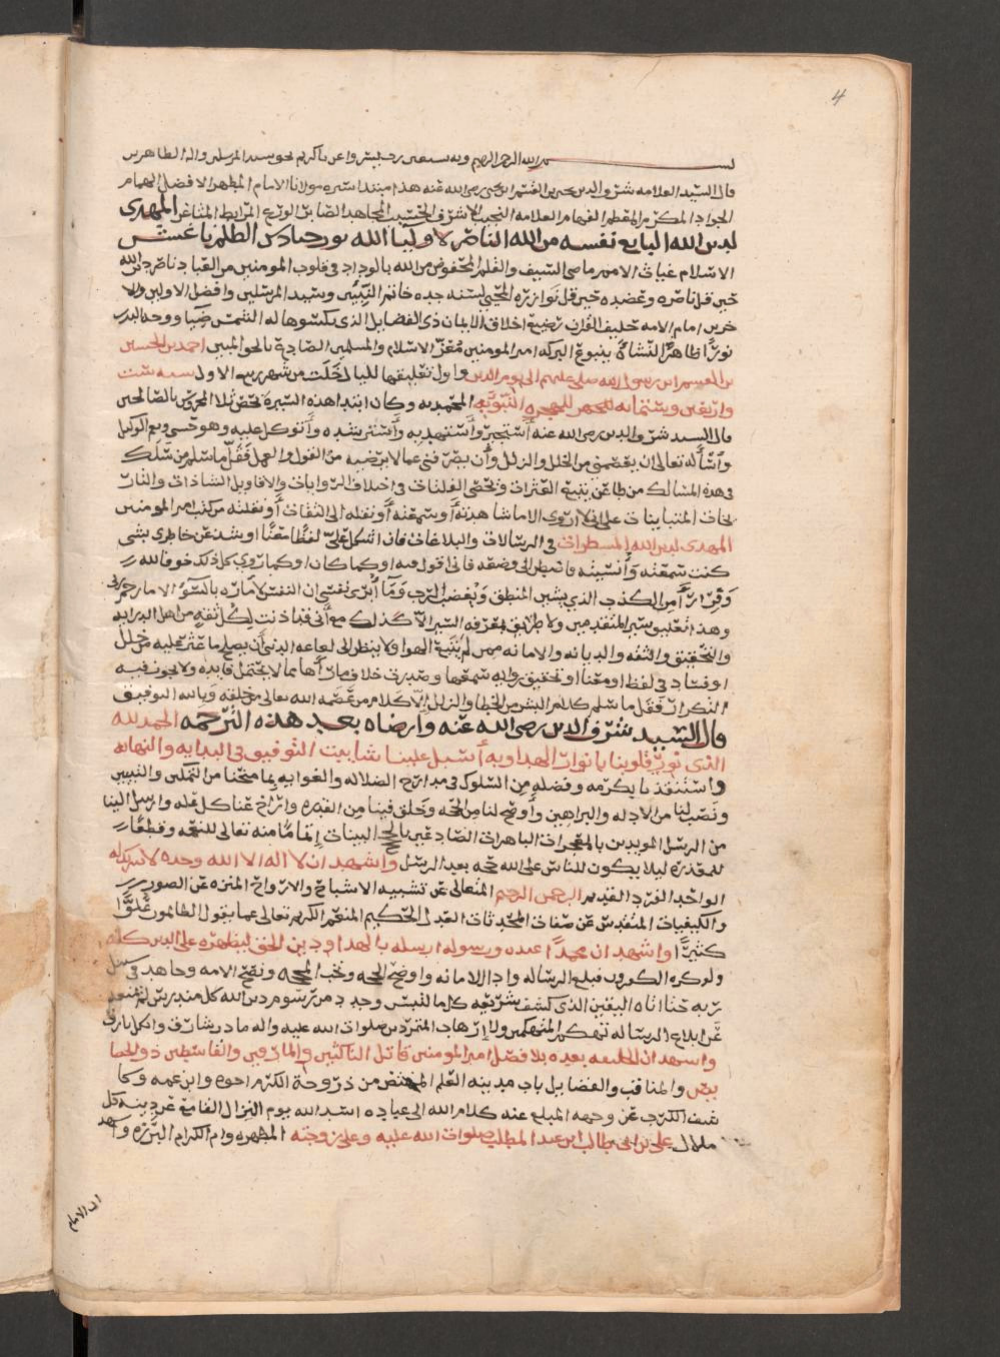 4
بسم الله الرحمن الرحيم وبه نستعين رب يسر واعن يا كريم بحق سيد المرسلين واله الطاهرين
قال السيد العلامه شرف الدين يحيى بن القسم بن يحيى رضي الله عنه هذا مبتدا سيره مولانا الامام المطهر الافضل الهمام
الجواد المكرم المعظم القمقام العلامه النجيب الاشرف الحسيب المجاهد الصابر الورع المرابط المثاغر المهدي
لدين الله البايع نفسه من الله الناصر لاوليا الله نور حنادس الظلم يا غسق
الاسلام غياث الامم ماضي السيف والقلم المخفوض من الله بالوداد في قلوب المومنين من العباد ناصر دين الله
حين قل ناصره وعضده حين قل توازره المحيي لسنه جده خاتم النبيين وسيد المرسلين وافضل الاولين والا
خرين امام الامه حليف القران رضيع اخلاق الايمان ذي الفضايل الذي يكسوها له الشمس ضيا ووجه البدر
نورا ظاهر النشاه ينبوع البركه امير المومنين معز الاسلام والمسلمين الصادع بالحق المبين احمد بن الحسين
بن القسم ابن رسول الله صلى عليهم الى يوم الدين واول تعليقها لليال خلت من شهر ربيع الاول سنه ست
واربعين وستمايه للهجره النبويه المحمديه وكان ابتدا هذه السيره بحصن ثلا المحروس بالصالحين
قال السيد شرف الدين رضي الله عنه استجير واستهدي به واسترشده واتوكل عليه وهو حسبي ونعم الوكيل
واساله تعالى ان يعصمني من الخلل والزلل وان يصرفني عما لا يرضيه من القول والعمل فقل ما سلم من سلك
في هذه المسالك من طاعن يتتبع العثرات ويحصي الفلتات في اختلاف الروايات والاقاويل الشاذات والتار
يخات المتباينات على اني لا اروي الا ما شاهدته او سمعته او نقله الي الثقات او نقلته من كتب امير المومنين
المهدي لدين الله المسطرات في الرسالات والبلاغات فان اشكل علي لفظا معنا او يشذ عن خاطري شي
كنت سمعته وانسيته فاني اقول فيه او كما كان او كما روي كل ذلك خوفا لله
وفرارا من الكذب الذي يشين المنطق ويغضب الرب وما ابري نفسي ان النفس لاماره بالسوء الا ما رحم ربي
وهذا تعليق سير المتقدمين ولا طريق لمعرفه السير الا كذلك مع اني قد اذنت لكل ثقه من اهل الدرايه
والتحقيق والثقه والديانه والامانه ممن لم يتبع الهوا ولا ينظر الى لعاعه الدنيا ان يصلح ما عثر عليه من خلل
او فساد في لفظ او معنا او تحقيق روايه سمعها وصدرت خلاف ما راها مما لا يحتمل فايده ولا يجوز فيه
النكرات فقل ما سلم كلام البشر من الخطا والزلل الا كلام من عصمه الله تعالى من خلقه وبالله التوفيق
قال السيد شرف الدين رضي الله عنه وارضاه بعد هذه الترجمه الحمد لله
الذي نور قلوبنا بانوار الهدايه واسبل علينا شابيب التوفيق في البدايه والنهايه
واستنقذنا بكرمه وفضله من السلوك في مدارج الضلاله والغوايه بما منحنا من التمكين والتبيين
ونصب لنا من الادله والبراهين واوضح لنا من الحجه وخلق فينا من القدره وازاح عنا كل عله وارسل الينا
من الرسل المويدين بالمعجزات الباهرات الصادعين بالحجج البينات اتماما منه تعالى للنعمه وقطعا
للمعذره ليلا يكون للناس على الله حجه بعد الرسل واشهد ان لا اله الا الله وحده لا شريك له
الواحد الفرد القديم الرحمن الرحيم المتعالي عن تشبيه الاشباح والارواح المنزه عن الصور
والكيفيات المتقدس عن صفات المحدثات العدل الحكيم المنعم الكريم تعالى عما يقول الظالمون علوا
كثيرا واشهد ان محمدا عبده ورسوله ارسله بالهدا ودين الحق ليظهره على الدين كله
ولو كره الكافرون فبلغ الرساله وادا الامانه واوضح الحجه ونصح الامه وجاهد في سبيل
ربه حتا اتاه اليقين الذي كشف بشريعته كلما التبس وجدد من رسوم دين الله كل مندرس لم تمنعه
عن ابلاغ الرساله تهكم المتهكمين ولا ارهاب المتمردين صلوات الله عليه واله ما در شارق وانكل بارق
واشهد ان الخليفه بعده بلا فصل امير المومنين قاتل الناكثين والمارقين والقاسطين ذو الخصا
يص والمناقب والفضايل باب مدينه العلم المختص من ذروحة الكرم اخوه وابن عمه وكا
شف الكرب عن وجهه المبلغ عنه كلام الله الى عباده اسد الله يوم النزال القامع عن دينه كل
ضلال علي بن ابي طالب ابن عبد المطلب صلوات الله عليه وعلى زوجته المطهره وام الكرام البرره واشهد
ان الامام